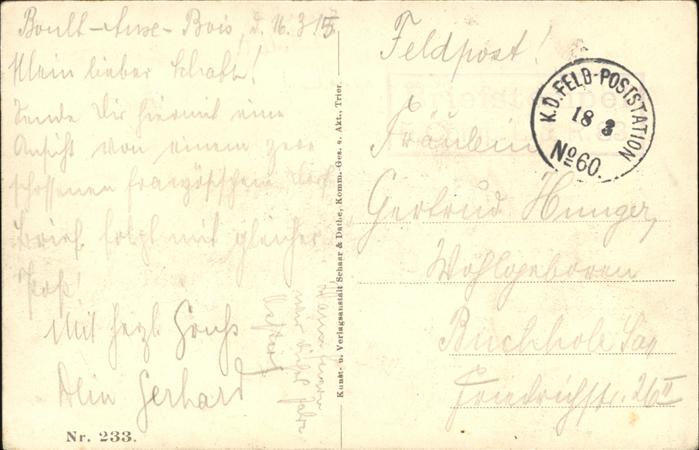 Boult-Aux-Bois, d. 16.3.15
Mein lieber Schatz!
Sende Dir hiermit eine
Ansicht von einem zer-
schossenen französischen Dorf
Brief folgt mit gleicher
Post
Mit herzl Gruß
Dein Gerhard
Nr. 233.
Kunst- u. Verlagsanstalt Schaar & Dathe, Komm.-Ges. a. Akt., Trier.
Feldpost!
Briefstempel
K.D. FELD-POSTSTATION
18 3
No 60.
Fräulein
Gertrud Hunger,
Wohlgeboren
Buchholz Sa
Friedrichstr. 26 II